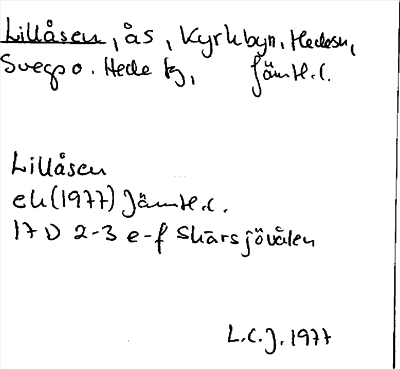 Lillåsen, ås, Kyrkbyn, Hedesn,
Svegs o. Hede tg, Jämtl.l.
Lillåsen
ek (1977) Jämtl.l.
17 D 2-3 e-f Skärsjövålen
L.C.J. 1977